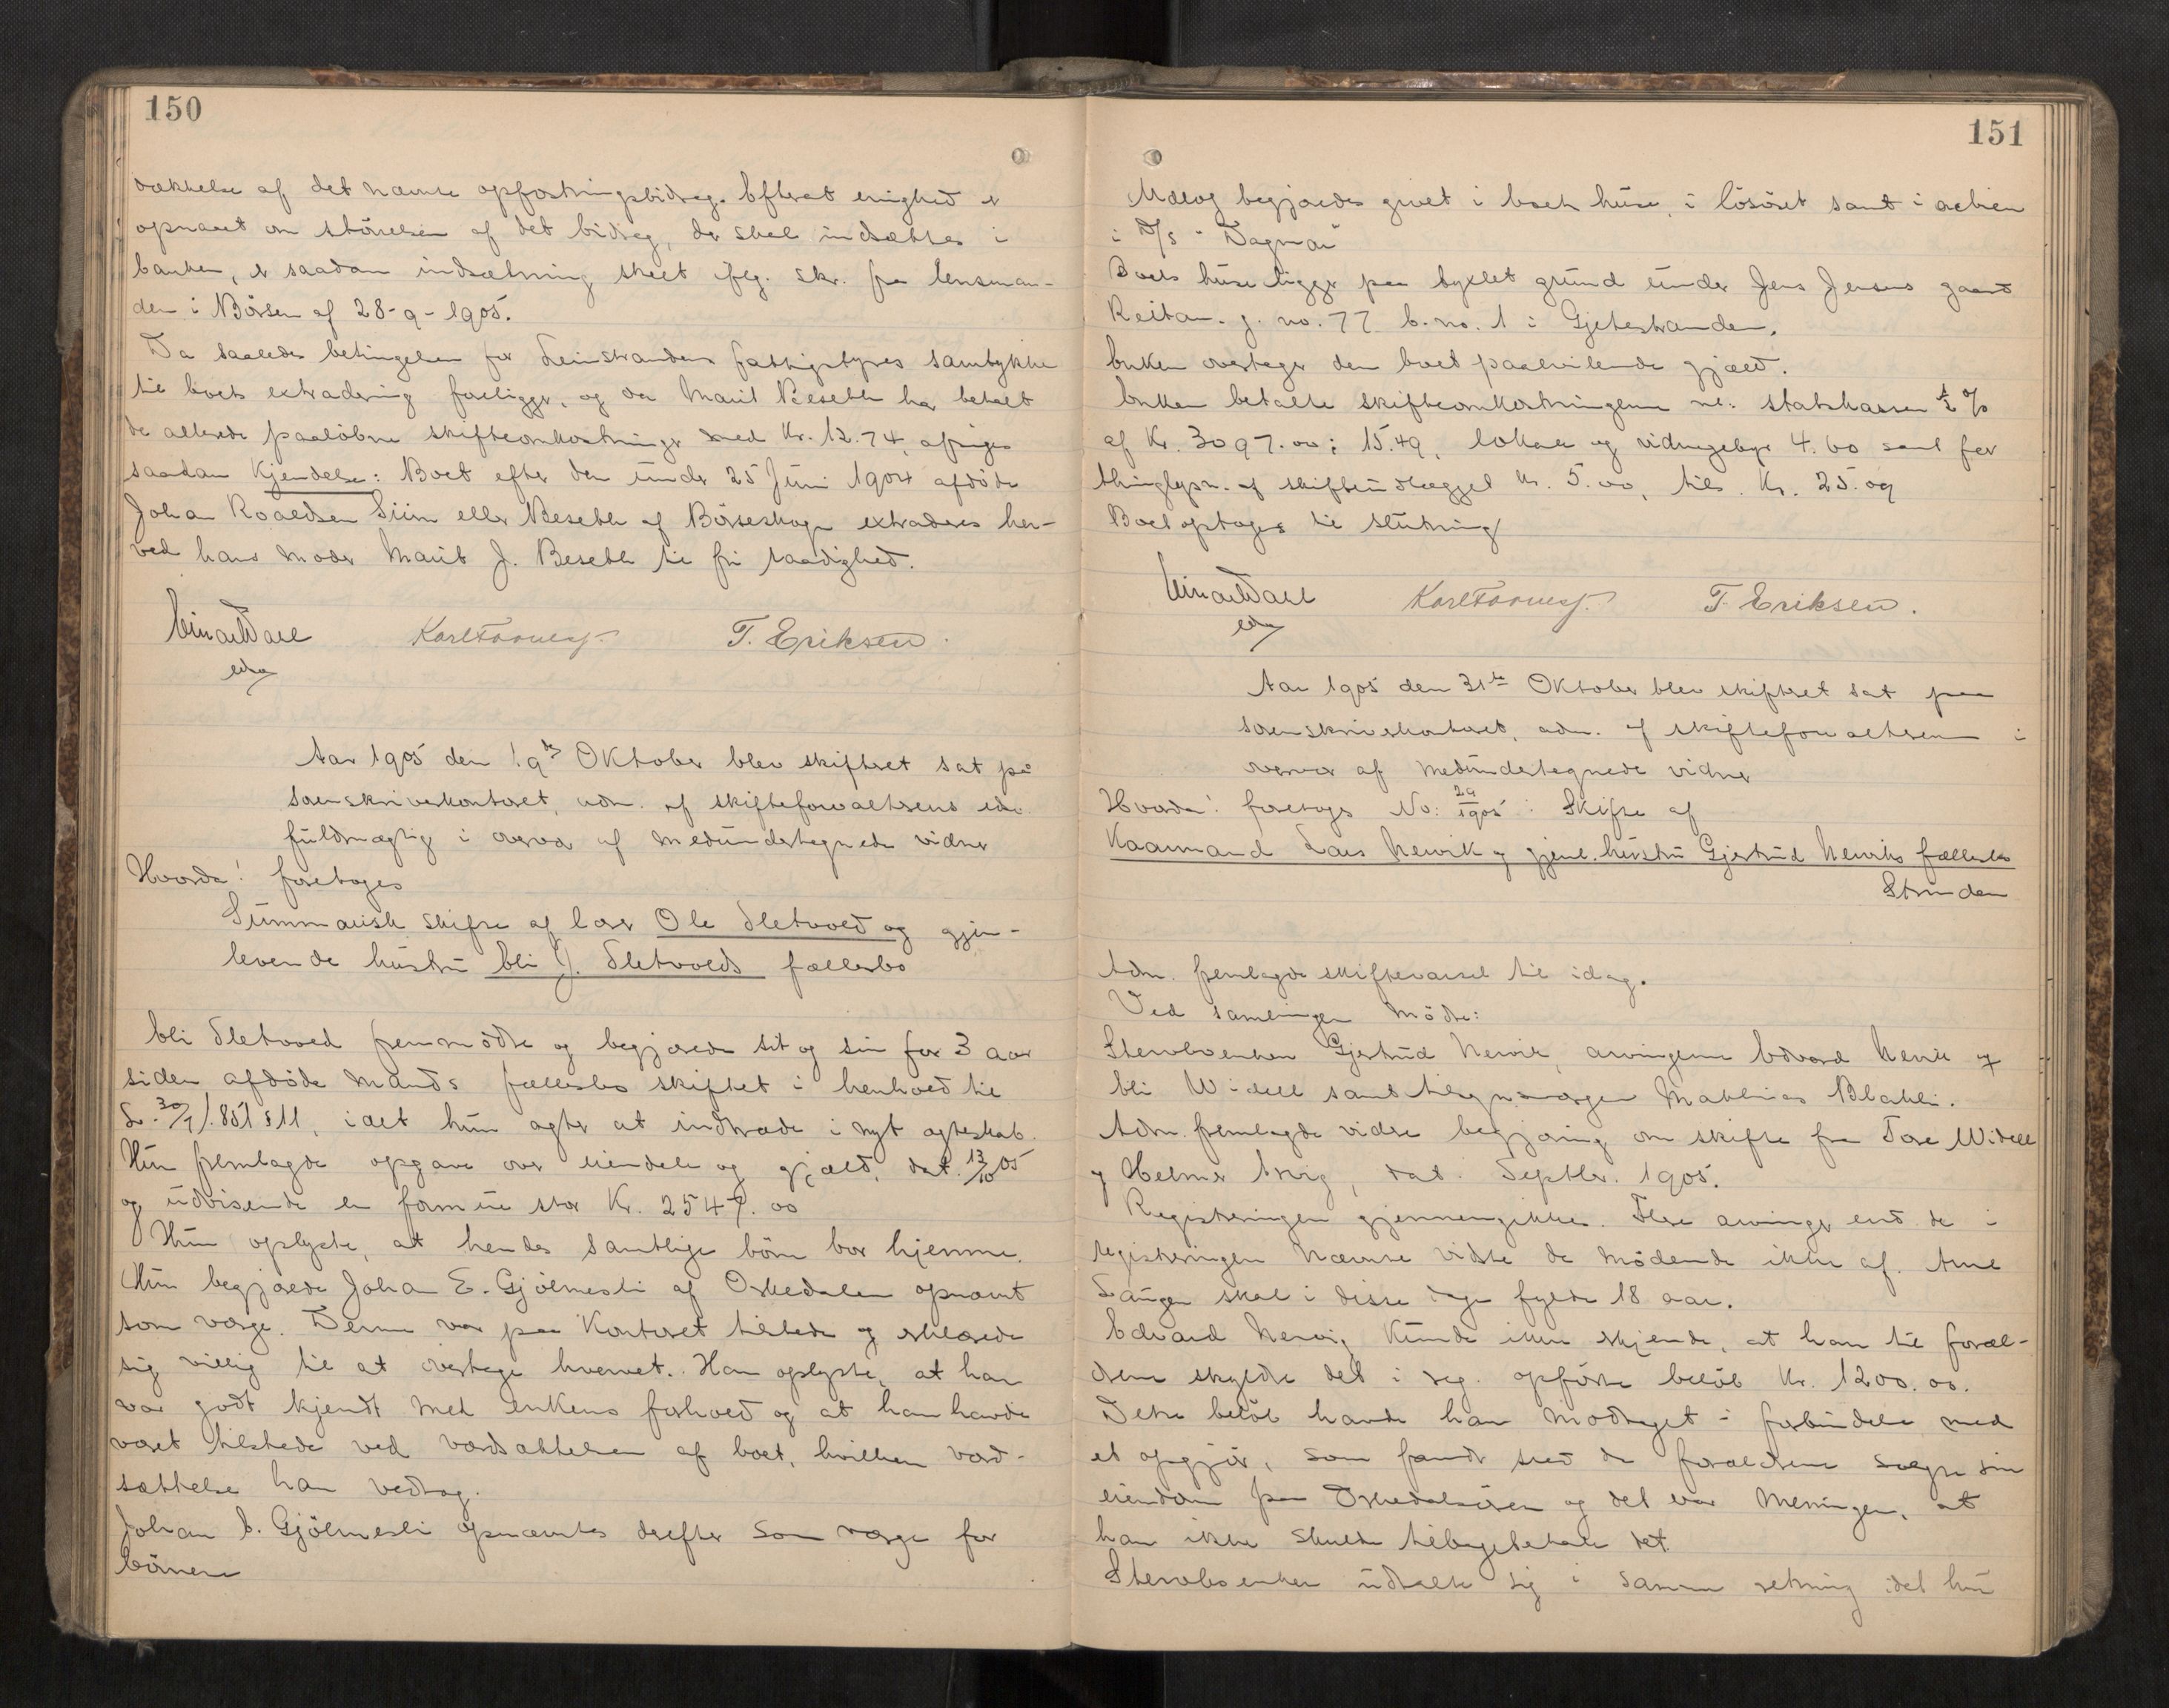 150
dækkelse af det nævnte opfostringsbidrag. Efterat enighed er
opnaaet om størrelsen af det bidrag, der skal indsættes i
banken, er saadan indsætning skeet iflg. skr. fra lensman-
den i Börsen af 28-9-1905.
Da saaledes betingelsen for Leinstrandens fattigstyres samtykke
til boets extradering foreligger, og da Marit Beseth har betalt
de allerede paalöbne skifteomkostninger med Kr. 12.74, afsiges
saadan Kjendelse: Boet efter den under 25 Juni 1904 afdöde
Johan Roaldsen Siim eller Beseth af Börseskogn extraderes her-
ved hans moder Marit J. Beseth til fri raadighed.
Einar Dahl Karl Forness. T. Eriksen.
edv
Aar 1905 den 19de Oktober blev skifteret sat på
sorenskriverkontoret, adm. af skifteforvalterens edv.
fuldmægtig i overvær af medundertegnede vidner
Hvorda! foretoges
Summarisk skifte af lær Ole Sletvold og gjen-
levende hustru Eli J. Sletvolds fællesbo
Eli Sletvold fremmödte og begjærede sit og sin for 3 aar
siden afdöde mands fællesbo skiftet i henhold til
L. 30/7 1851 § 11, idet hun agter at indtræde i nyt ægteskab.
Hun fremlagde opgave over eiendele og gjæld, dat. 13/10 05
og udvisende en formue stor Kr. 2547.00
Hun oplyste, at hendes samtlige börn bor hjemme.
Hun begjærede Johan E. Gjölmesli af Orkedalen opnævnt
som værge. Denne var paa Kontoret tilstede og erklærede
sig villig til at overtage hvervet. Han oplyste, at han
var godt kjendt med enkens forhold og at han havde
været tilstede ved værdsættelsen af boet, hvilken værd-
sættelse han vedtog.
Johan E. Gjölmesli opnævntes derefter som værge for
börnene
151
Udlæg begjæredes givet i boets huse, i lösöret samt i actien
i D/S "Dagmar"
Boets huse ligger paa byxlet grund under Jens Jensens gaard
Reitan. g. no. 77 b. no. 1 i Gjetestranden.
Enken overtager den boet paahvilende gjæld.
Enken betalte skifteomkostningerne nl: statskassen 1/2 %
af Kr. 3097.00: 15.49, lokale og vidnegebyr 4.60 samt for
thinglysn. af skifteudlægget Kr. 5.00, tils. Kr. 25.09
Boet optages til slutning
Einar Dahl Karl Forness. T. Eriksen.
edv
Aar 1905 den 31te Oktober blev skifteret sat paa
sorenskriverkontoret, adm. af skifteforvalteren i
overvær af medundertegnede vidner
Hvorda! foretoges No: 29/1905: Skifte af
Kaarmand Lars Nervik og gjenl. hustru Gjertrud Nerviks fællesbo
Strinden
Adm. fremlagde skiftevarsel til idag.
Ved samlingen mödte:
Stervboenken Gjertrud Nervik, arvingerne Edvard Nervik og
Eli Widell samt tilsynsværgen Mathias Blakli.
Adm. fremlagde vidre begjæring om skifte fra Tore Widell
og Helmer Berg, dat. Septbr. 1905.
Registeringen gjennemgikkes. Flere arvinger end de i
registeringen nævnte vidste de mödende ikke af. Arne
Laugen skal i disse dage fylde 18 aar.
Edvard Nervig kunde ikke erkjende, at han til foræl-
drene skyldte det i reg. opförte belöb Kr. 1200.00.
Dette belöb havde han modtaget i forbindelse med
et opgjör, som fandt sted da forældrene solgte sin
eiendom paa Orkedalsören og det var meningen, at
han ikke skulde tilbagebetale det.
Stervboenken udtalte sig i samme retning idet hun